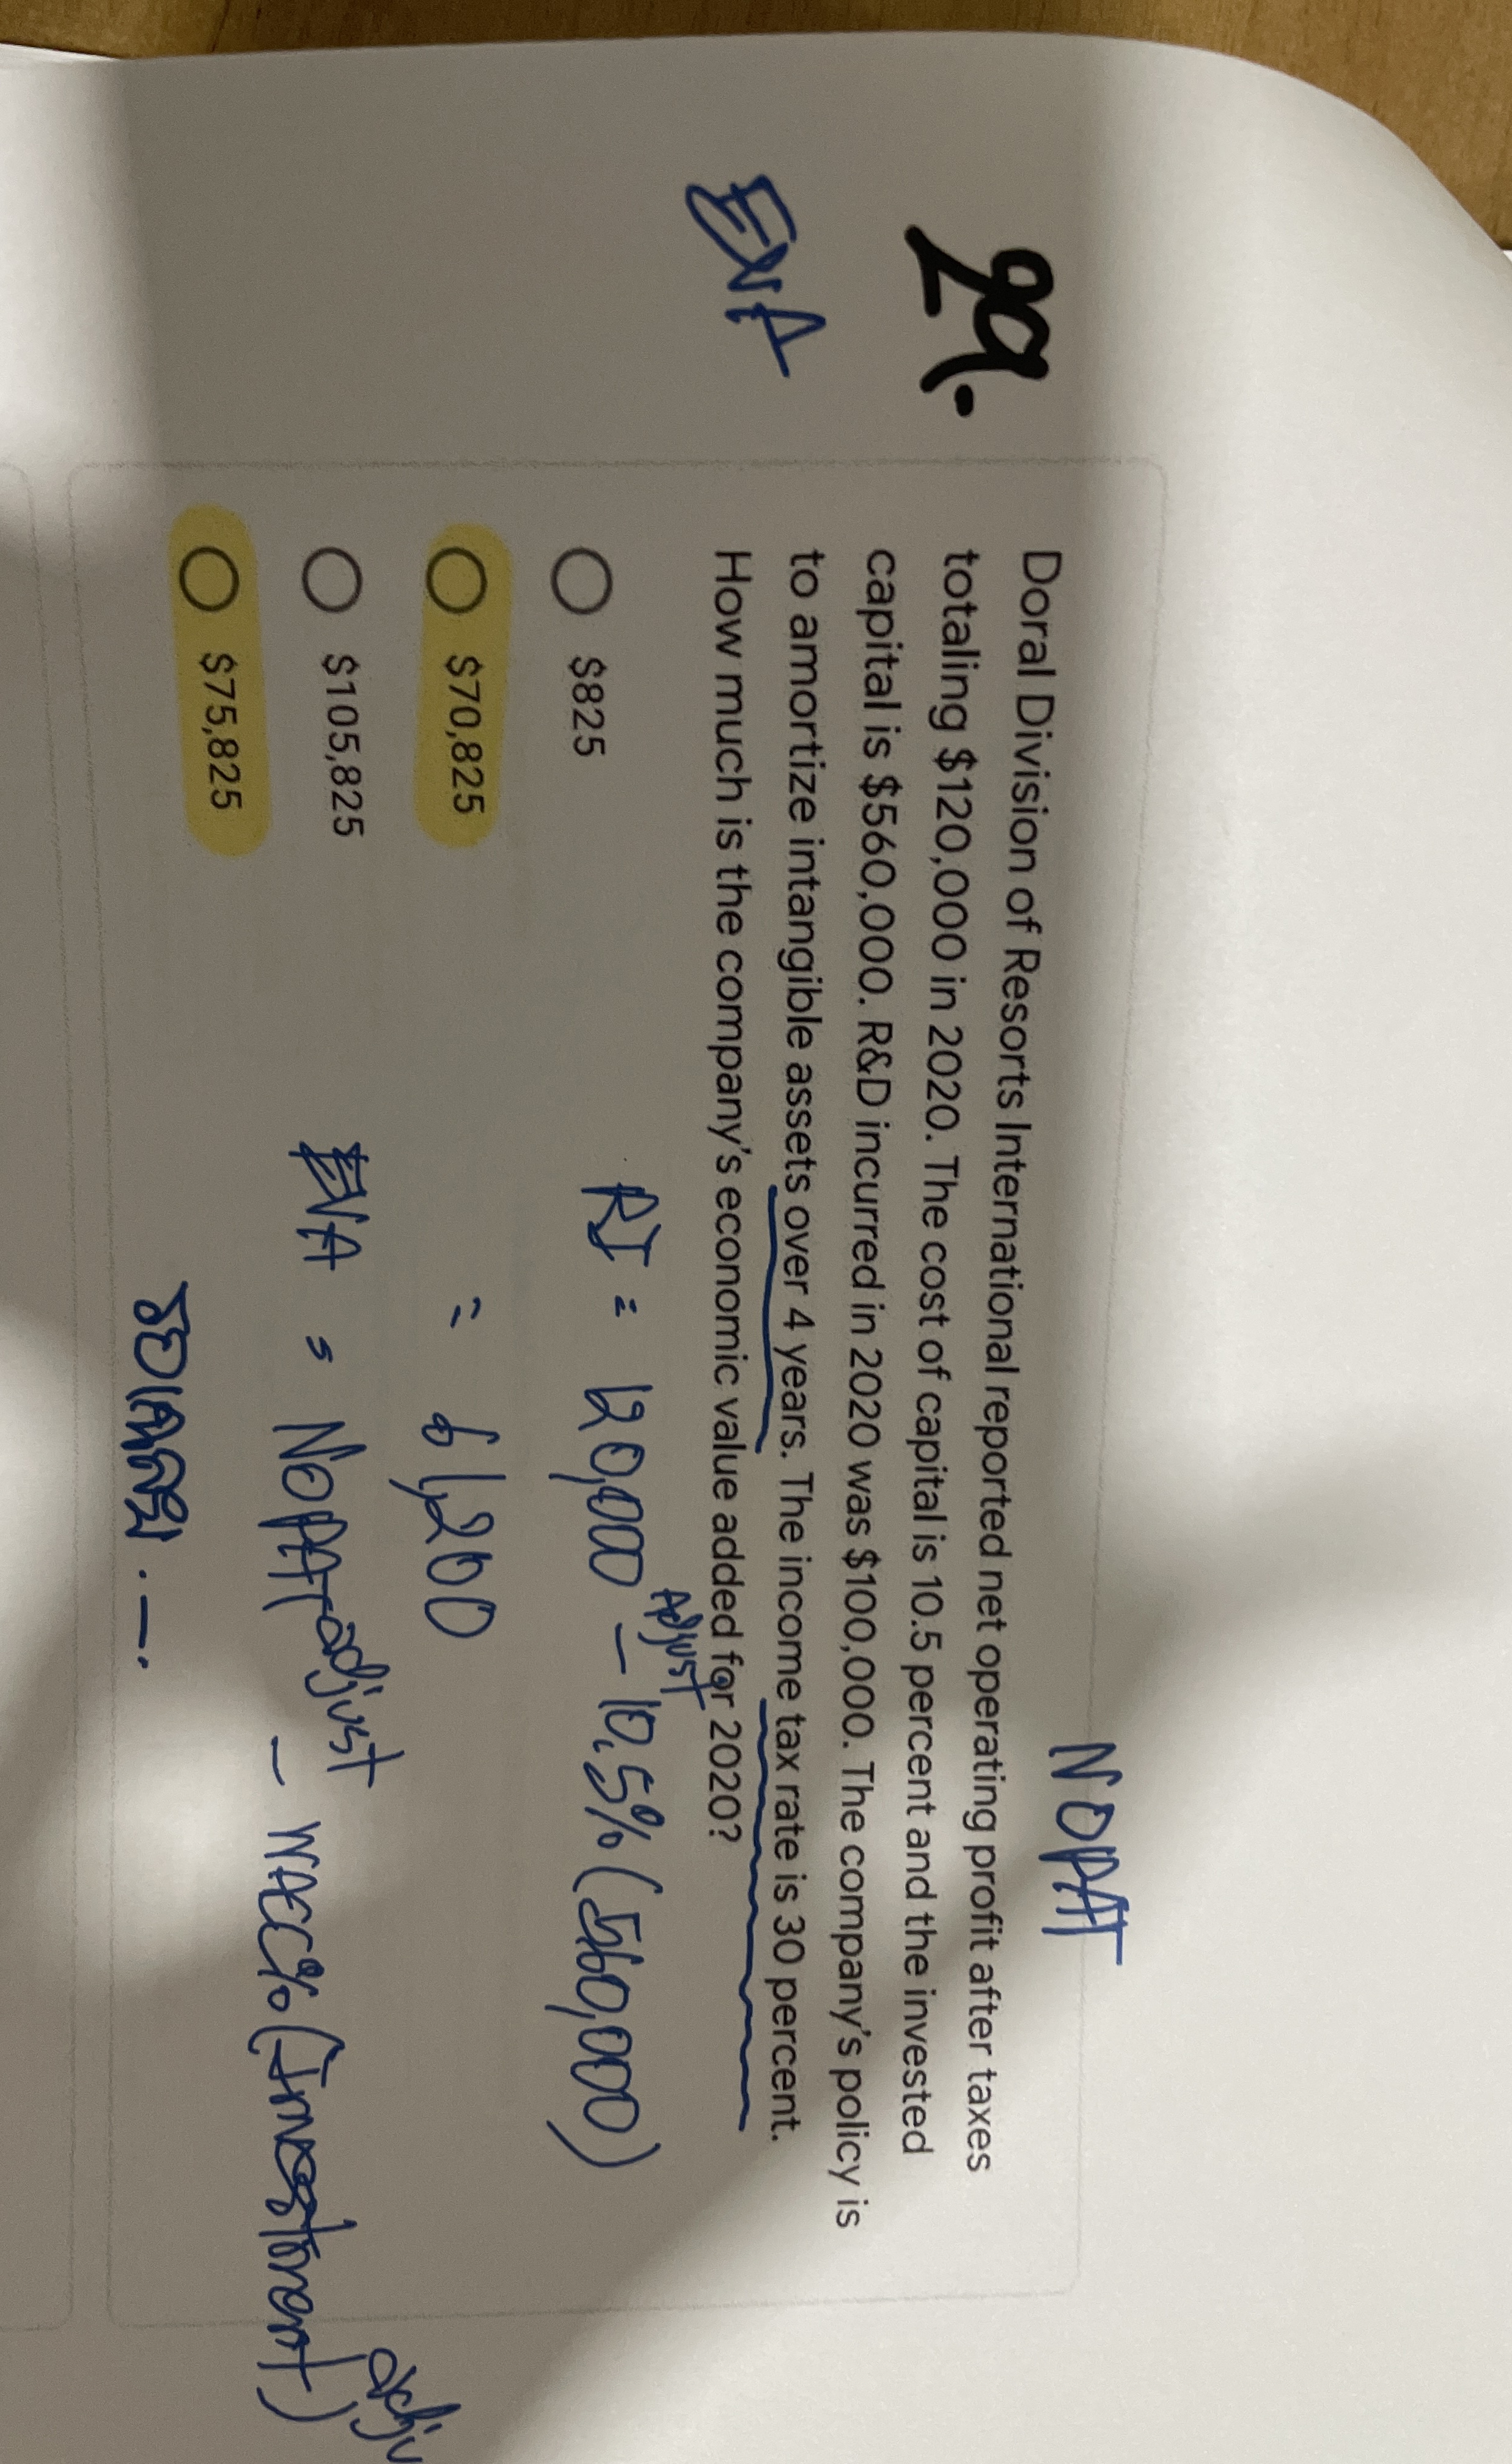 NOPAT
29.
Doral Division of Resorts International reported net operating profit after taxes
totaling $120,000 in 2020. The cost of capital is 10.5 percent and the invested
capital is $560,000. R&D incurred in 2020 was $100,000. The company's policy is
to amortize intangible assets over 4 years. The income tax rate is 30 percent.
How much is the company's economic value added for 2020?
EVA
Adjust
$825
RI = 120,000 - 10.5% (560,000)
$70,825
= 61,200
adju
$105,825
EVA = NOPAT adjust - WACC% (Investment)
$75,825
รอเฉลย